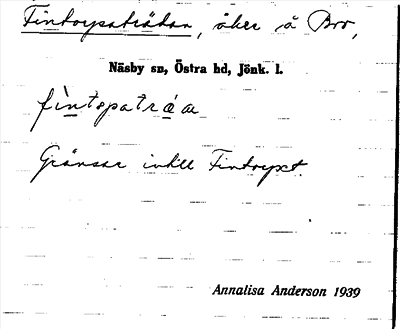 Fintorpaträdan, åker å Bro,
Näsby sn, Östra hd, Jönk. l.
fìntspatráa
Gränsar intill Fintorpet.
Annalisa Anderson 1939